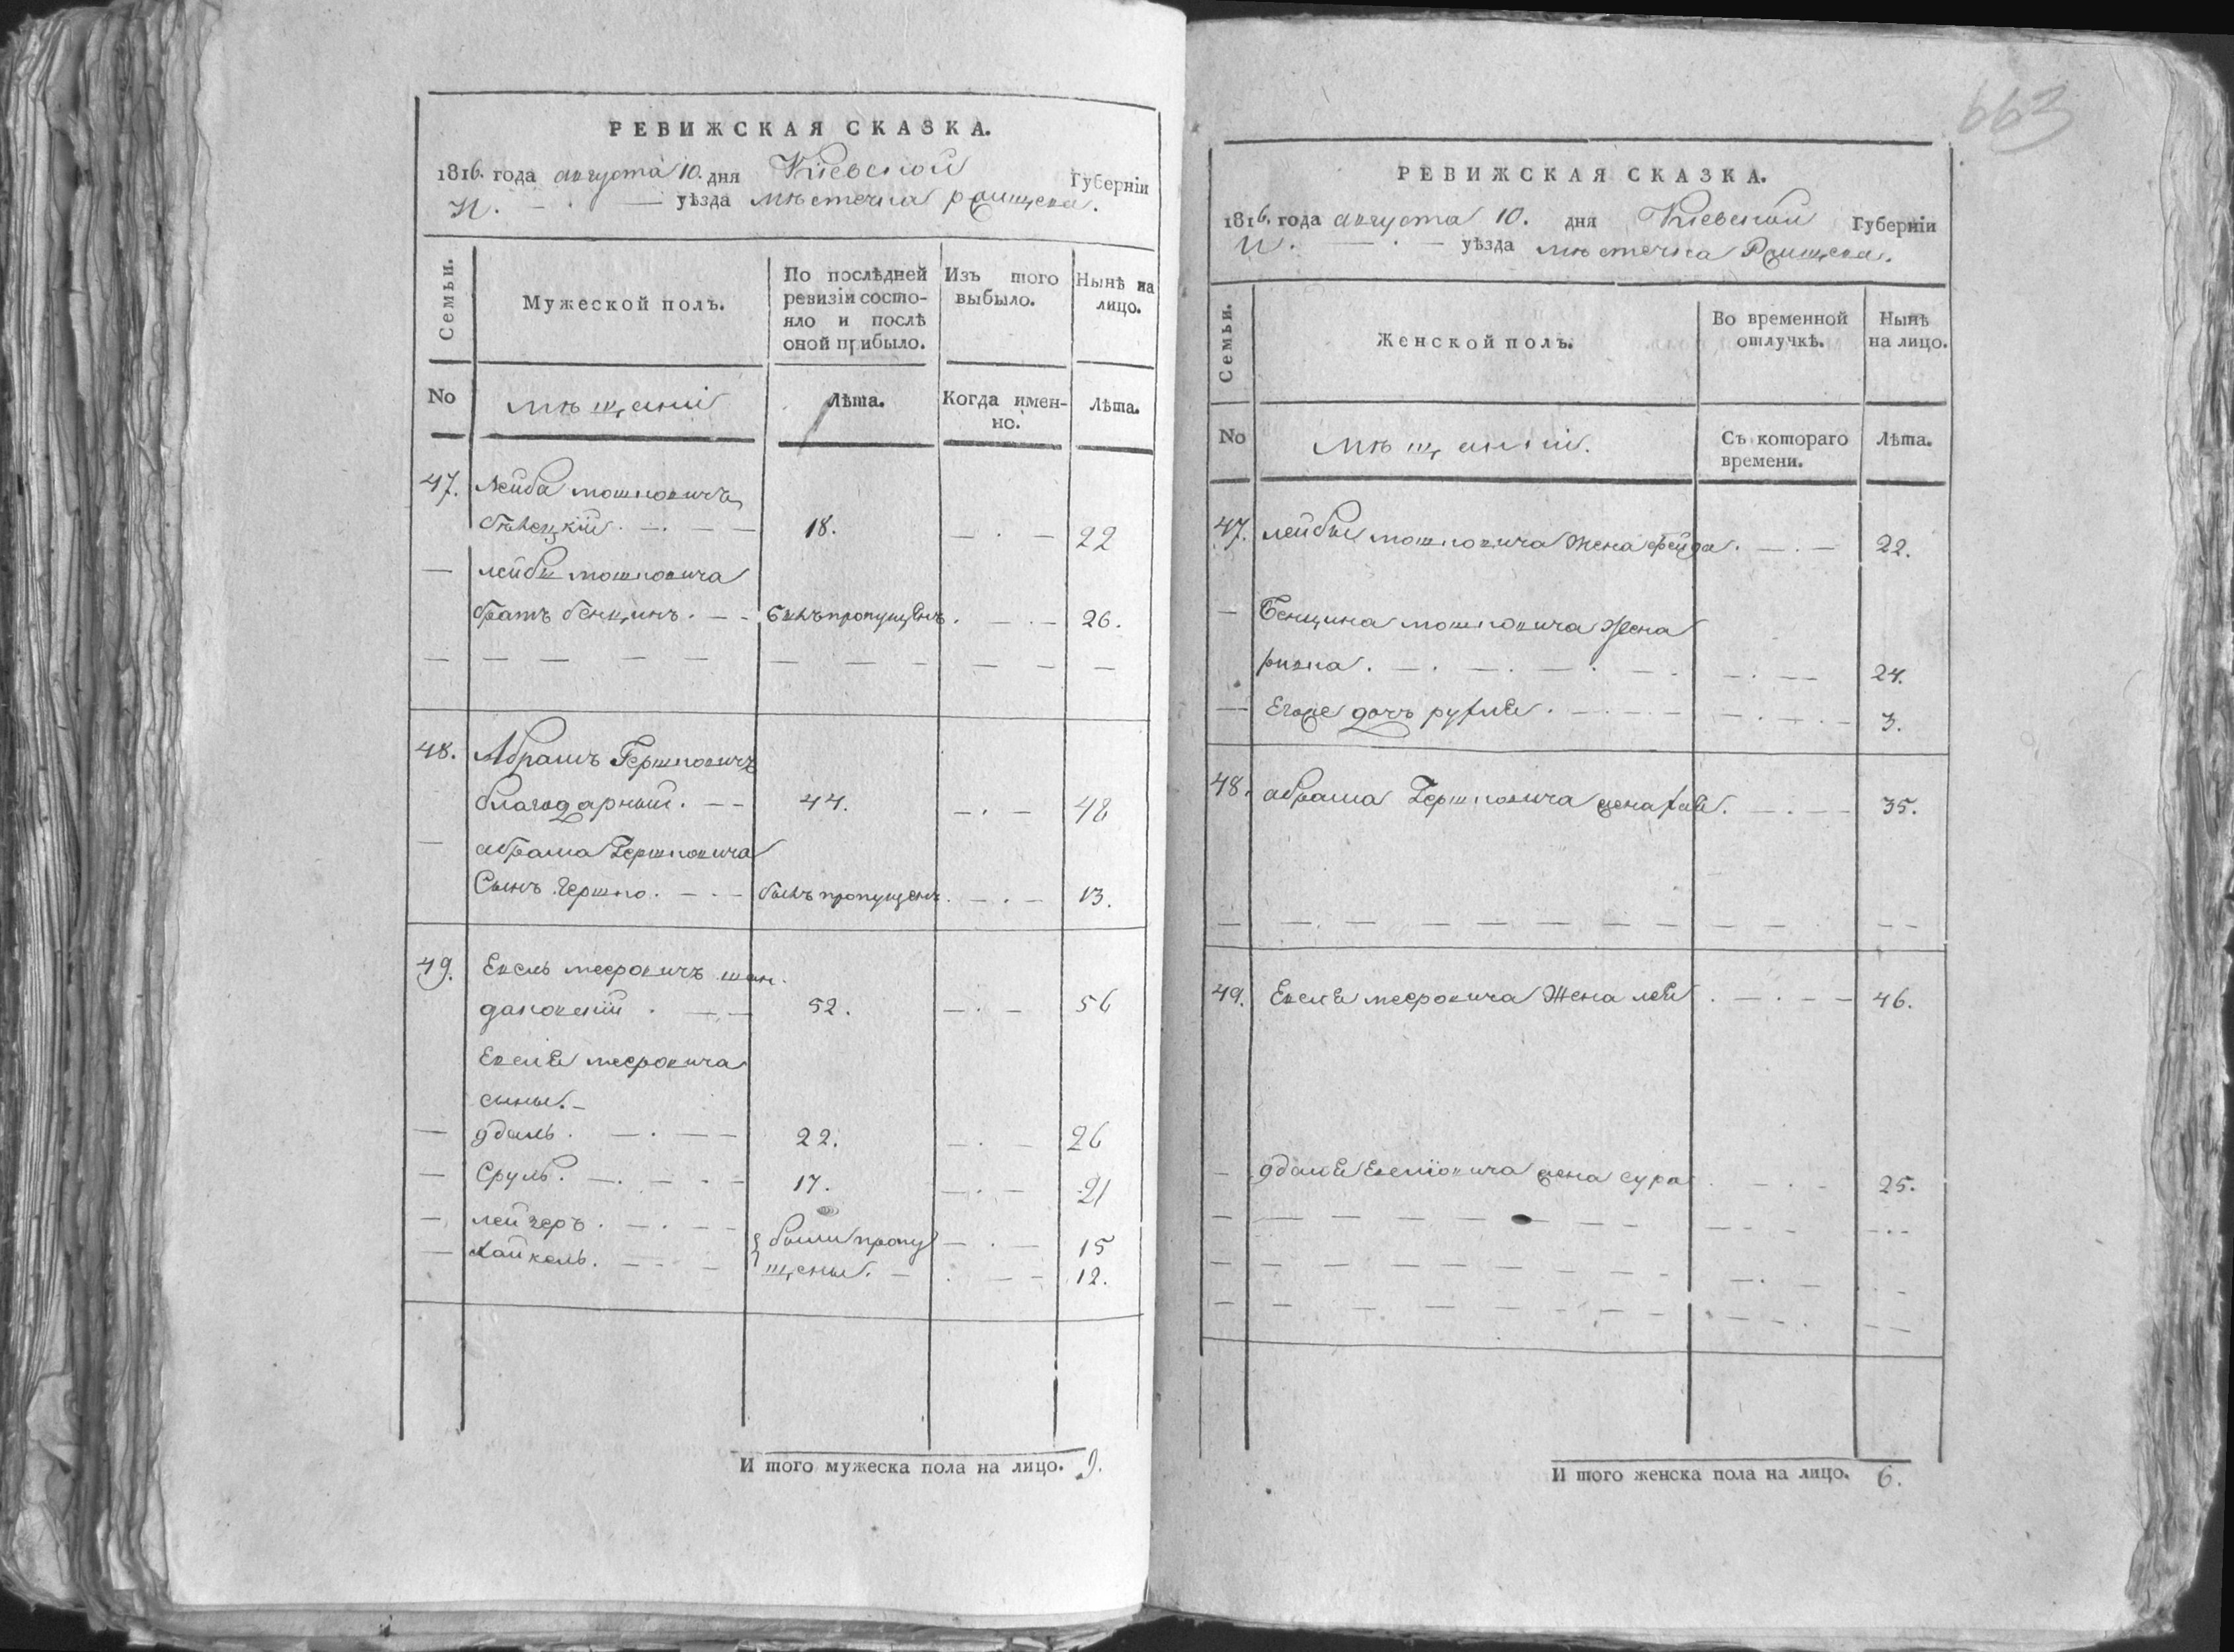 РЕВИЖСКАЯ СКАЗКА.
1816. года августа 10. дня Кіевской Губерніи
И. уѣзда мѣстечка
Семьи.
Мужеской полъ.
По послѣдней
ревизіи состо-
яло и послѣ
оной прибыло.
Изъ того
выбыло.
Нынѣ на
лицо.
No
мѣщаніи
Лѣта.
Когда имен-
но.
Лѣта.
47. Лейба мошковичъ
18. 22
— лейбы мошковича
братъ бенцинъ. былъ пропущенъ. 26.
48. Абрамъ Гершковичъ
благодарный. 44. 48
— абрама Гершковича
Сынъ Гершко. былъ пропущенъ. 13.
49. Евель мееровичъ шан-
дановскій 52. 56
мееровича
сыны.
— 22. 26
— Сруль. 17. 21
— лейзеръ. были пропу 15
— Хайкель. щены. 12.
И того мужеска пола на лицо. 9.
663
РЕВИЖСКАЯ СКАЗКА.
1816. года августа 10. дня Кіевской Губерніи
И. уѣзда мѣстечка
Семьи.
Женской полъ.
Во временной
отлучкѣ.
Нынѣ
на лицо.
No
мѣщаніи.
Съ котораго
времени.
Лѣта.
47. лейбы мошковича жена фейга. 22.
— Бенцина мошковича жена
ривка. 24.
— Егоже дочь рухля. 3.
48. абрама Гершковича жена хая. 35.
49. мееровича Жена лея. 46.
— жена сура 25.
И того женска пола на лицо. 6.